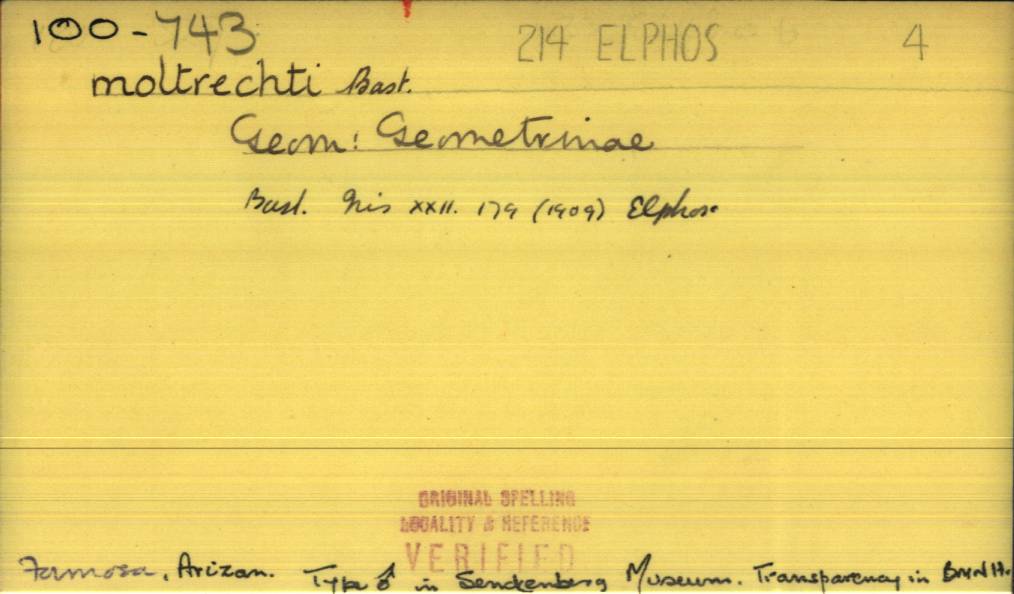 100-743 214 ELPHOS 4
moltrechti Bast.
Geom: Geometrinae
Bast. Iris XXII. 179 (1909) Elphos.
ORIGINAL SPELLING
LOCALITY & REFERENCE
VERIFIED
Formosa, Arizan. Type ♂ in Senckenberg Museum. Transparency in BMNH.